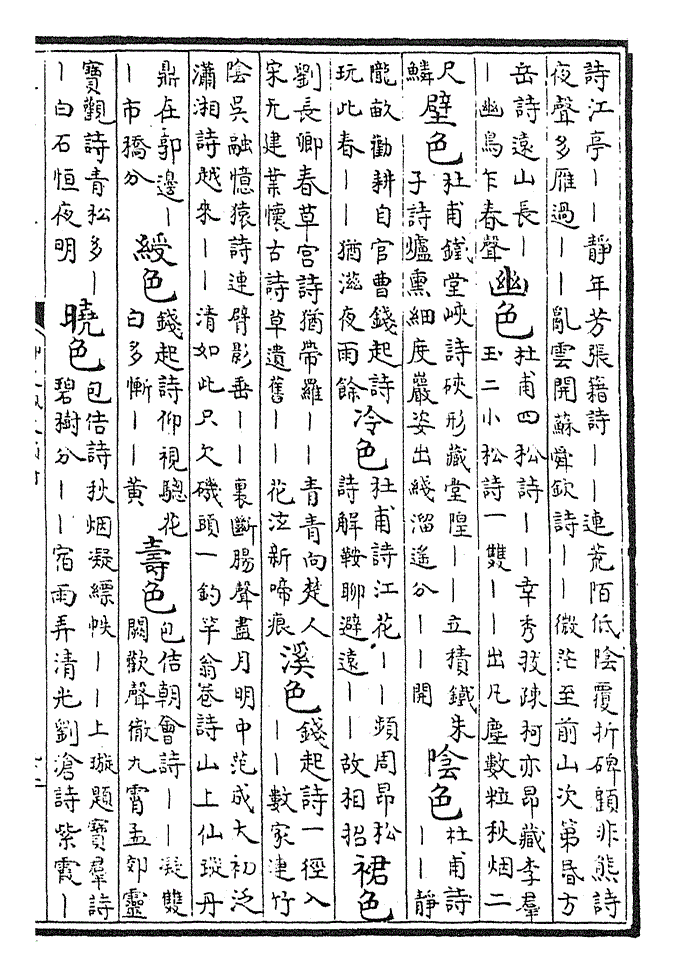 詩江亭丨丨靜年芳張籍詩丨丨連荒陌低陰覆折碑題非熊詩
夜聲多雁過丨丨亂雲開蘇舜欽詩丨丨微茫至前山次第昏方
岳詩遠山長丨
丨幽鳥乍春聲
幽色
杜甫四松詩丨丨幸秀我疎柯亦昂藏李羣
玉二小松詩一雙丨丨出凡塵數粒秋烟二
尺
鱗
壁色
杜甫鐵堂峽詩硤形藏堂隍丨丨立積鐵朱
子詩爐熏細度巖姿出綫溜遙分丨丨開
陰色
杜甫詩
丨丨靜
隴畝勸耕自官曹錢起詩
玩此春丨丨猶滋夜雨餘
冷色
杜甫詩江花丨丨頻周昂松
詩解鞍聊避遠丨丨故相招
裙色
劉長卿春草宮詩猶帶羅丨丨青青向楚人
宋无建業懷古詩草遺舊丨丨花泣新啼痕
溪色
錢起詩一徑入
丨丨數家連竹
陰吳融憶猿詩連臂影垂丨丨裏斷腸聲盡月明中范成大初泛
瀟湘詩越來丨丨清如此只欠磯頭一釣竿翁卷詩山上仙璇丹
鼎在郭邊丨
丨市橋分
綬色
錢起詩仰視驄花
白多慚丨丨黃
壽色
包佶朝會詩丨丨凝雙
闕歡聲徹九霄孟郊靈
寶觀詩青松多丨
丨白石恒夜明
曉色
包佶詩秋烟凝縹帙丨丨上璇題寶羣詩
碧樹分丨丨宿雨弄清光劉滄詩紫霞丨